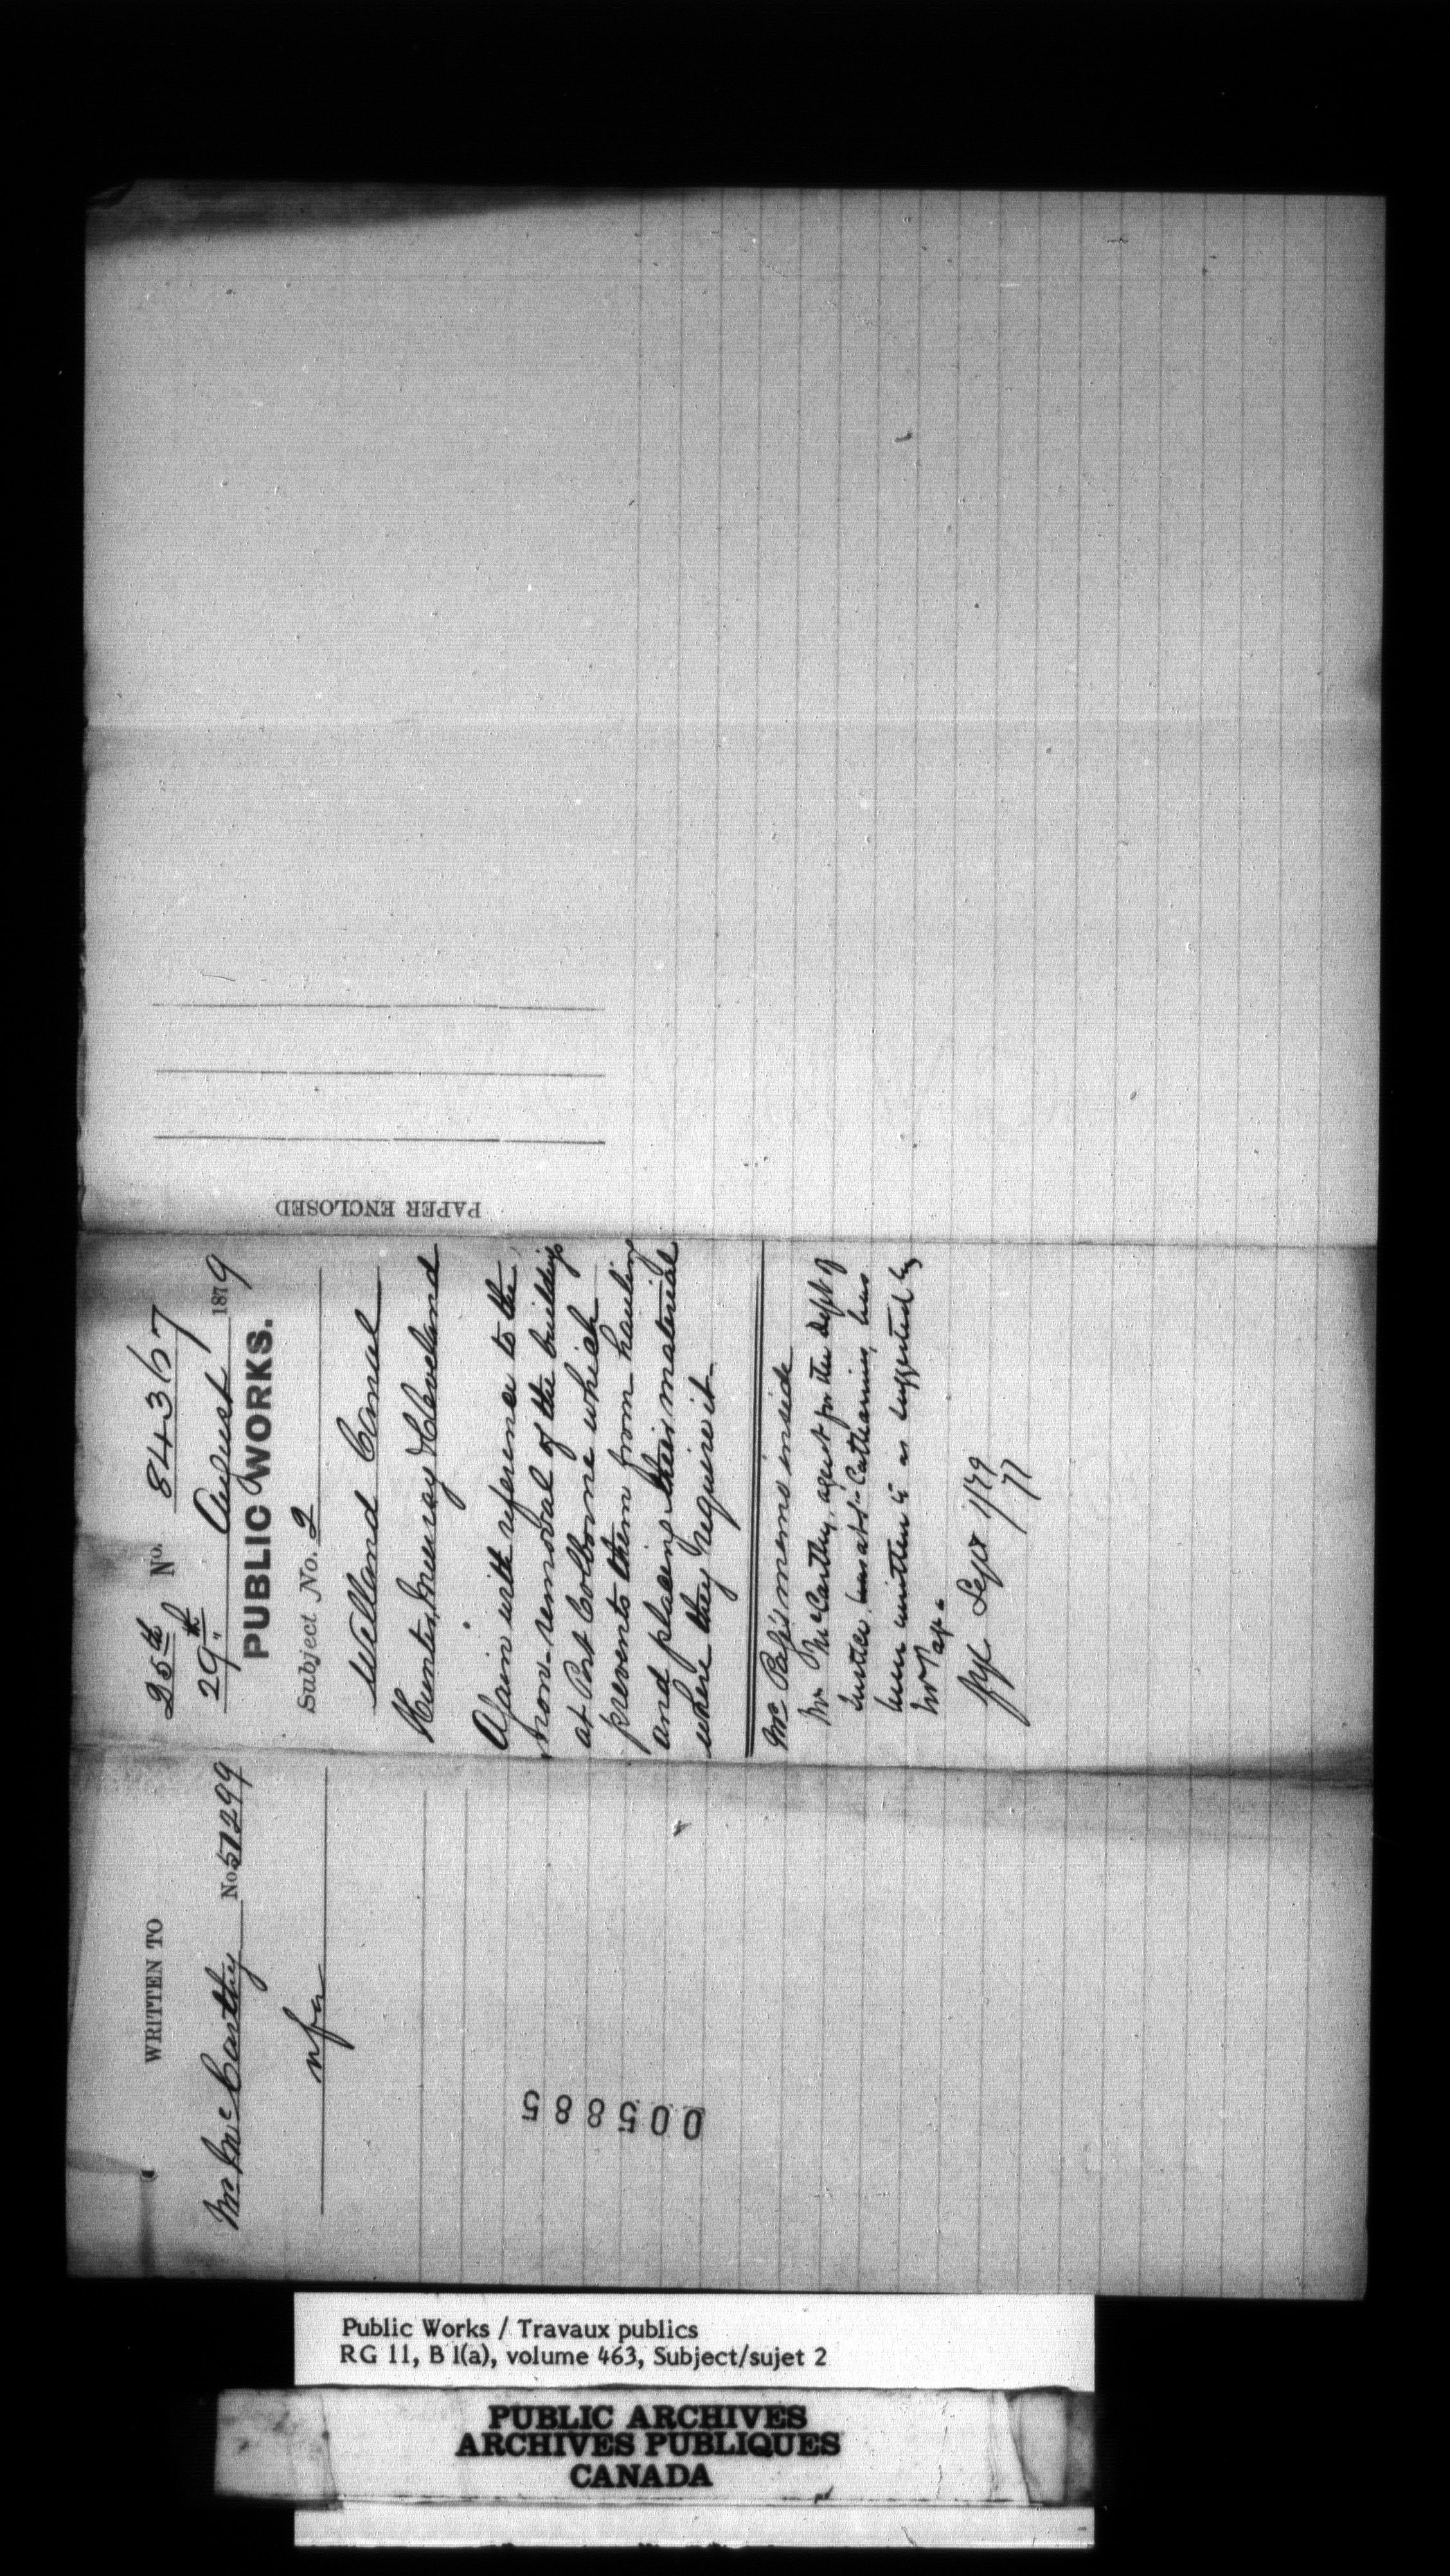 WRITTEN TO
Mr McCarthy No 57299
nfa
005885
25th No. 84367
29th August 1879
PUBLIC WORKS.
Subject No. 2
Welland Canal
Hunter, Murray & Cleveland
Again with reference to the
non-removal of the buildings
at Port Colborne which
prevents them from hauling
and placing their material
where they require it
Mr Page's memo inside
Mr McCarthy, agent for the Dept of
Justice, at St Catharines, has
been written to as suggested by
Mr Page
Sept 1/79
PAPER ENCLOSED
Public Works / Travaux publics
RG 11, B 1(a), volume 463, Subject/sujet 2
PUBLIC ARCHIVES
ARCHIVES PUBLIQUES
CANADA